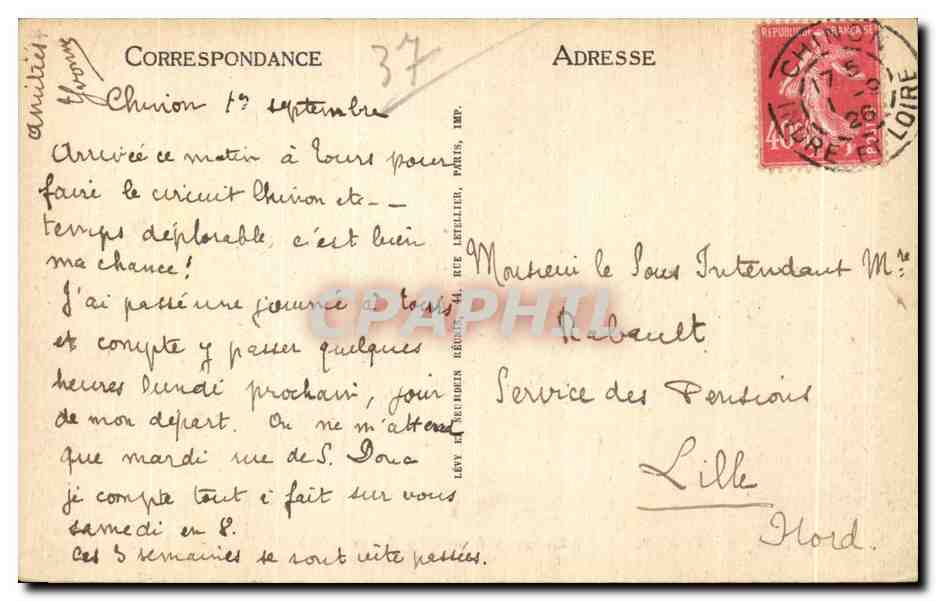 CORRESPONDANCE
37
Chinon 1er septembre
Arrivée ce matin à Tours pour
faire le circuit Chinon etc--
temps déplorable, c'est bien
ma chance!
J'ai passé une journée à Tours
et compte y passer quelques
heures lundi prochain, jour
de mon départ. On ne m'attend
que mardi rue de S. Douai
je compte tout à fait sur vous
samedi en 8.
Ces 3 semaines se sont vite passées.
amitiés
Yvonne
LÉVY ET NEURDEIN RÉUNIS, 44, RUE LETELLIER, PARIS, IMP.
ADRESSE
REPUBLIQUE FRANÇAISE
CHINON
17 5
1 9
26
INDRE ET LOIRE
Monsieur le Sous Intendant Mre
Rabault
Service des Pensions
Lille
Nord.
CPAPHIL